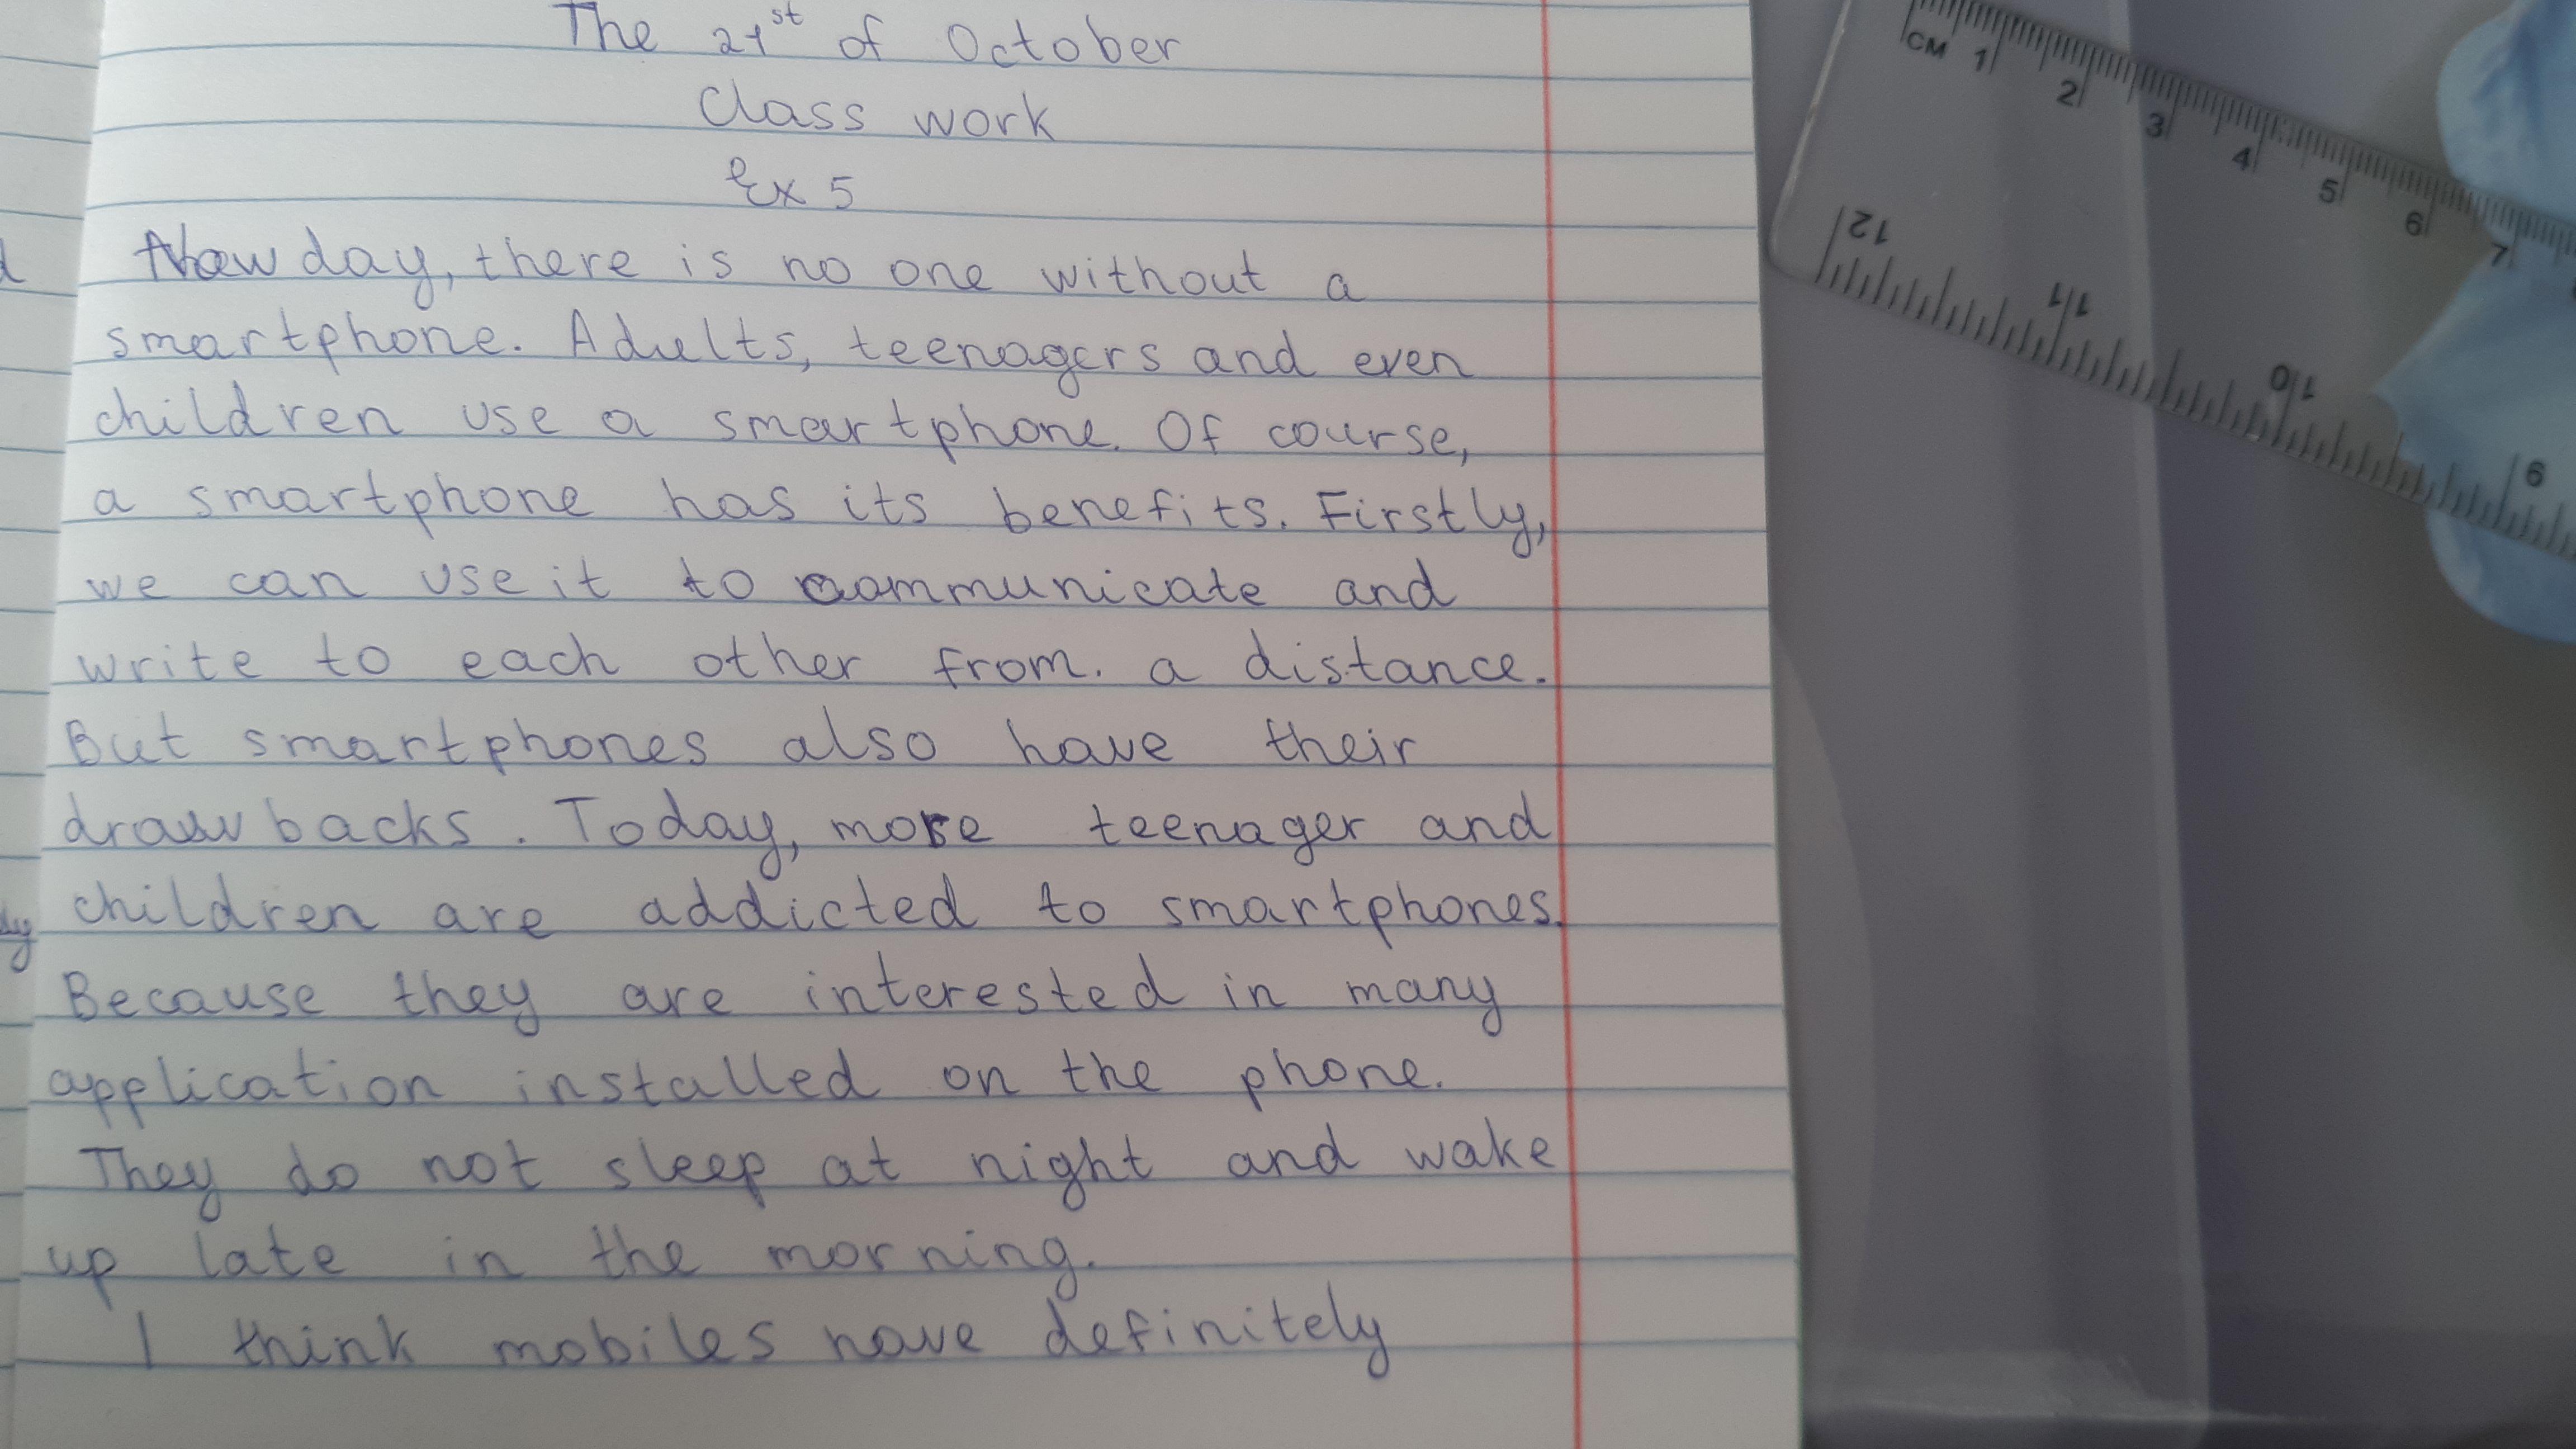 The 21st of October
Class work
Ex 5
Now day, there is no one without a
smartphone. Adults, teenagers and even
children use a smartphone. Of course,
a smartphone has its benefits. Firstly,
we can use it to communicate and
write to each other from. a distance.
But smartphones also have their
drawbacks. Today, more teenager and
children are addicted to smartphones.
Because they are interested in many
application installed on the phone.
They do not sleep at night and wake
up late in the morning.
I think mobiles have definitely
CM 1 2 3 4 5 6 7
12 11 10 9